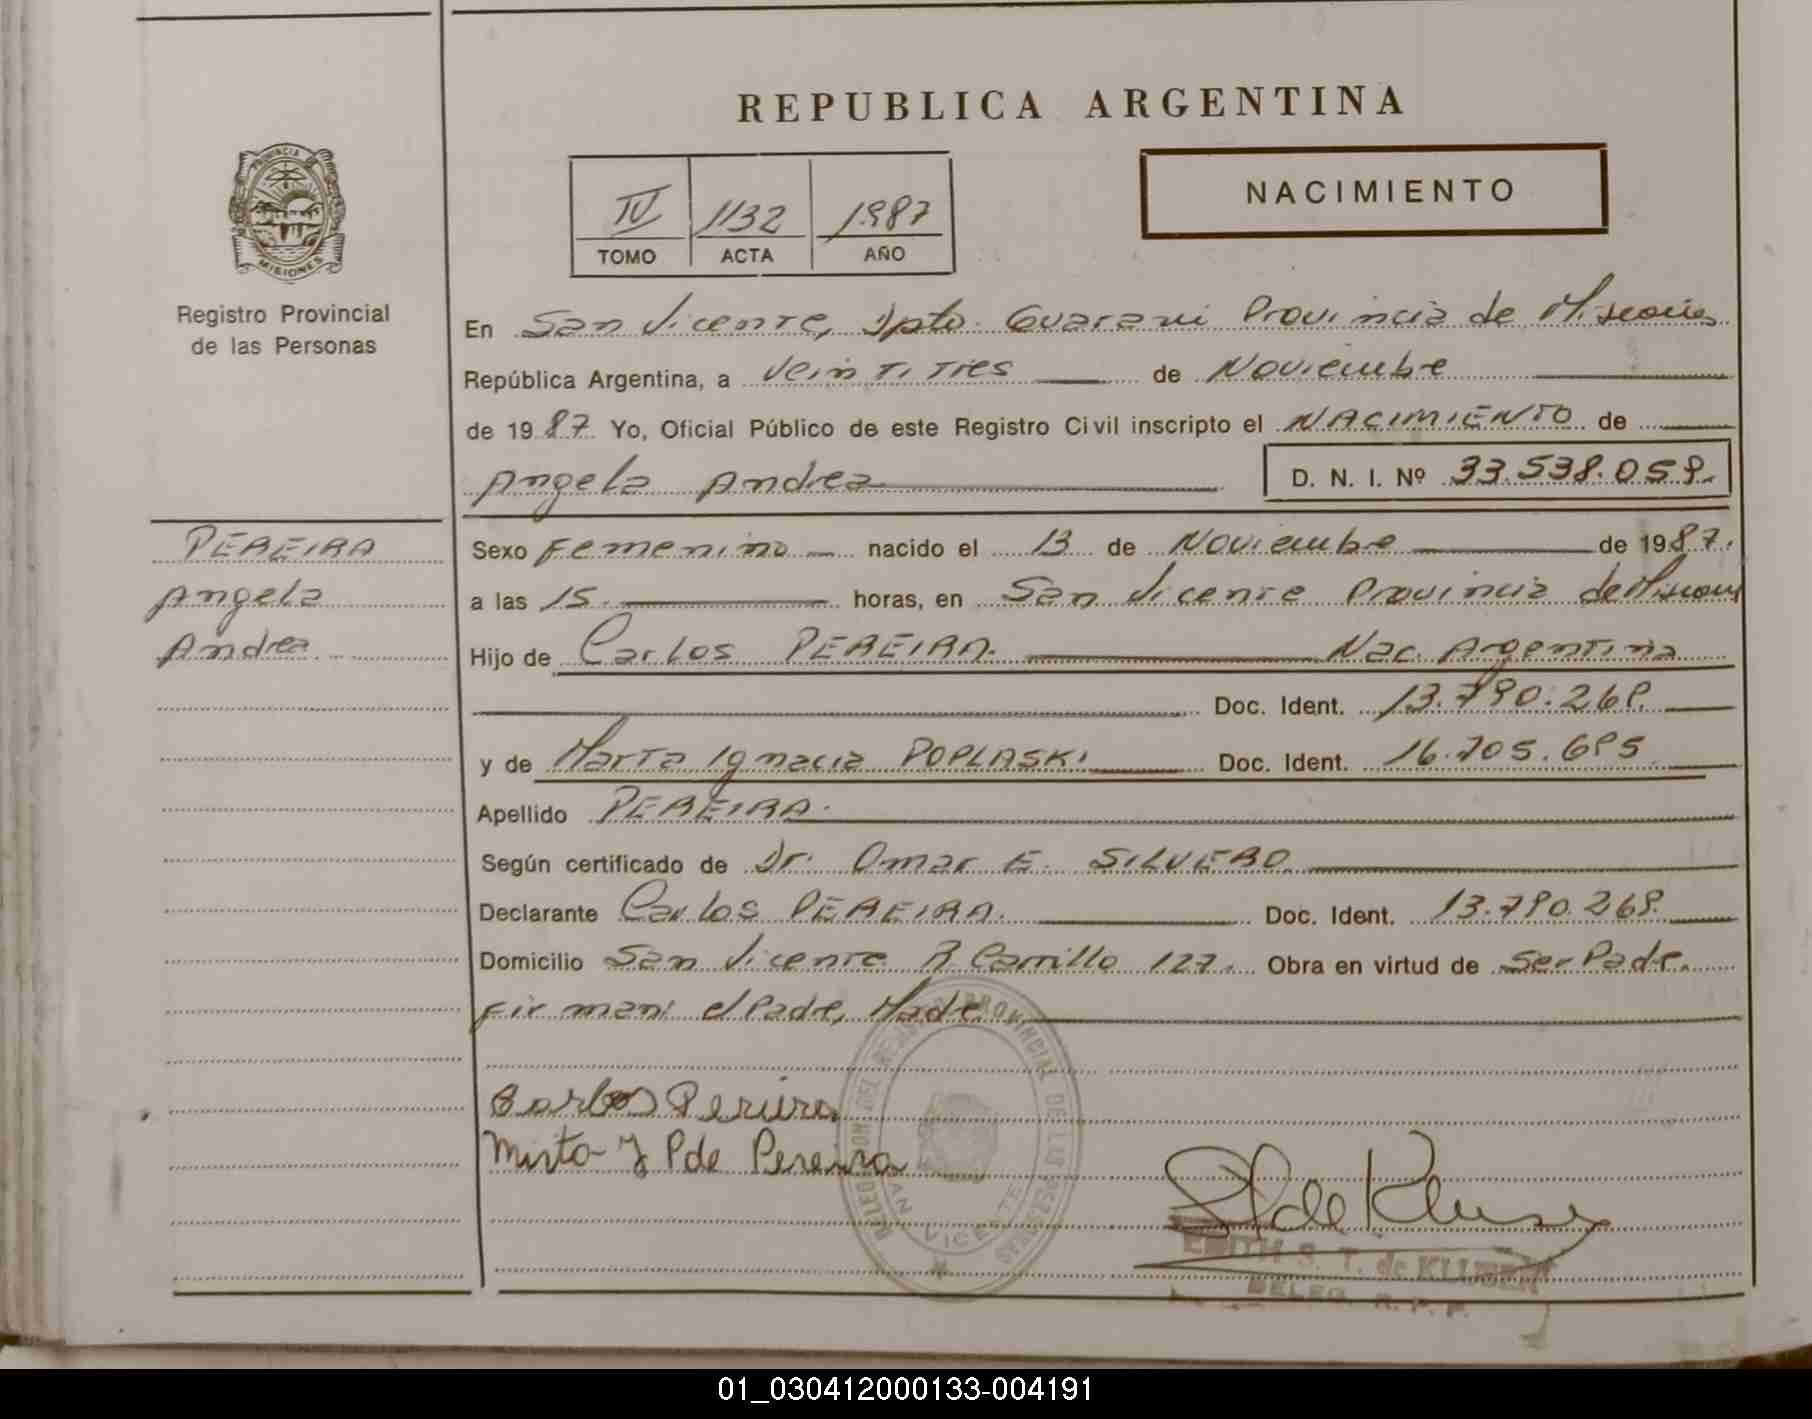 REPUBLICA ARGENTINA
NACIMIENTO
IV 1132 1987
TOMO ACTA AÑO
PROVINCIA DE
MISIONES
Registro Provincial
de las Personas
En San Vicente, Dpto. Guarani Provincia de Misiones
República Argentina, a Veintitres de Noviembre
de 1987 Yo, Oficial Público de este Registro Civil inscripto el NACIMIENTO de
Angela Andrea D. N. I. Nº 33.538.059.
PEREIRA
Angela
Andrea
Sexo Femenino nacido el 13 de Noviembre de 1987.
a las 15. horas, en San Vicente Provincia de Misiones
Hijo de Carlos PEREIRA. Nac. Argentina
Doc. Ident. 13.790.268.
y de Ignacia POPLASKI Doc. Ident. 16.705.695
Apellido PEREIRA.
Según certificado de Dr. Omar E. SILVERO.
Declarante Carlos PEREIRA. Doc. Ident. 13.790.268.
Domicilio San Vicente R. Carrillo 127. Obra en virtud de Ser Padre.
Firman: el Padre, Madre.
Carlos Pereira
Mirta Y P de Pereira
SAN VICENTE
EDITH S. T. de KLUSENER
DELEG. R. P. P.
01_030412000133-004191